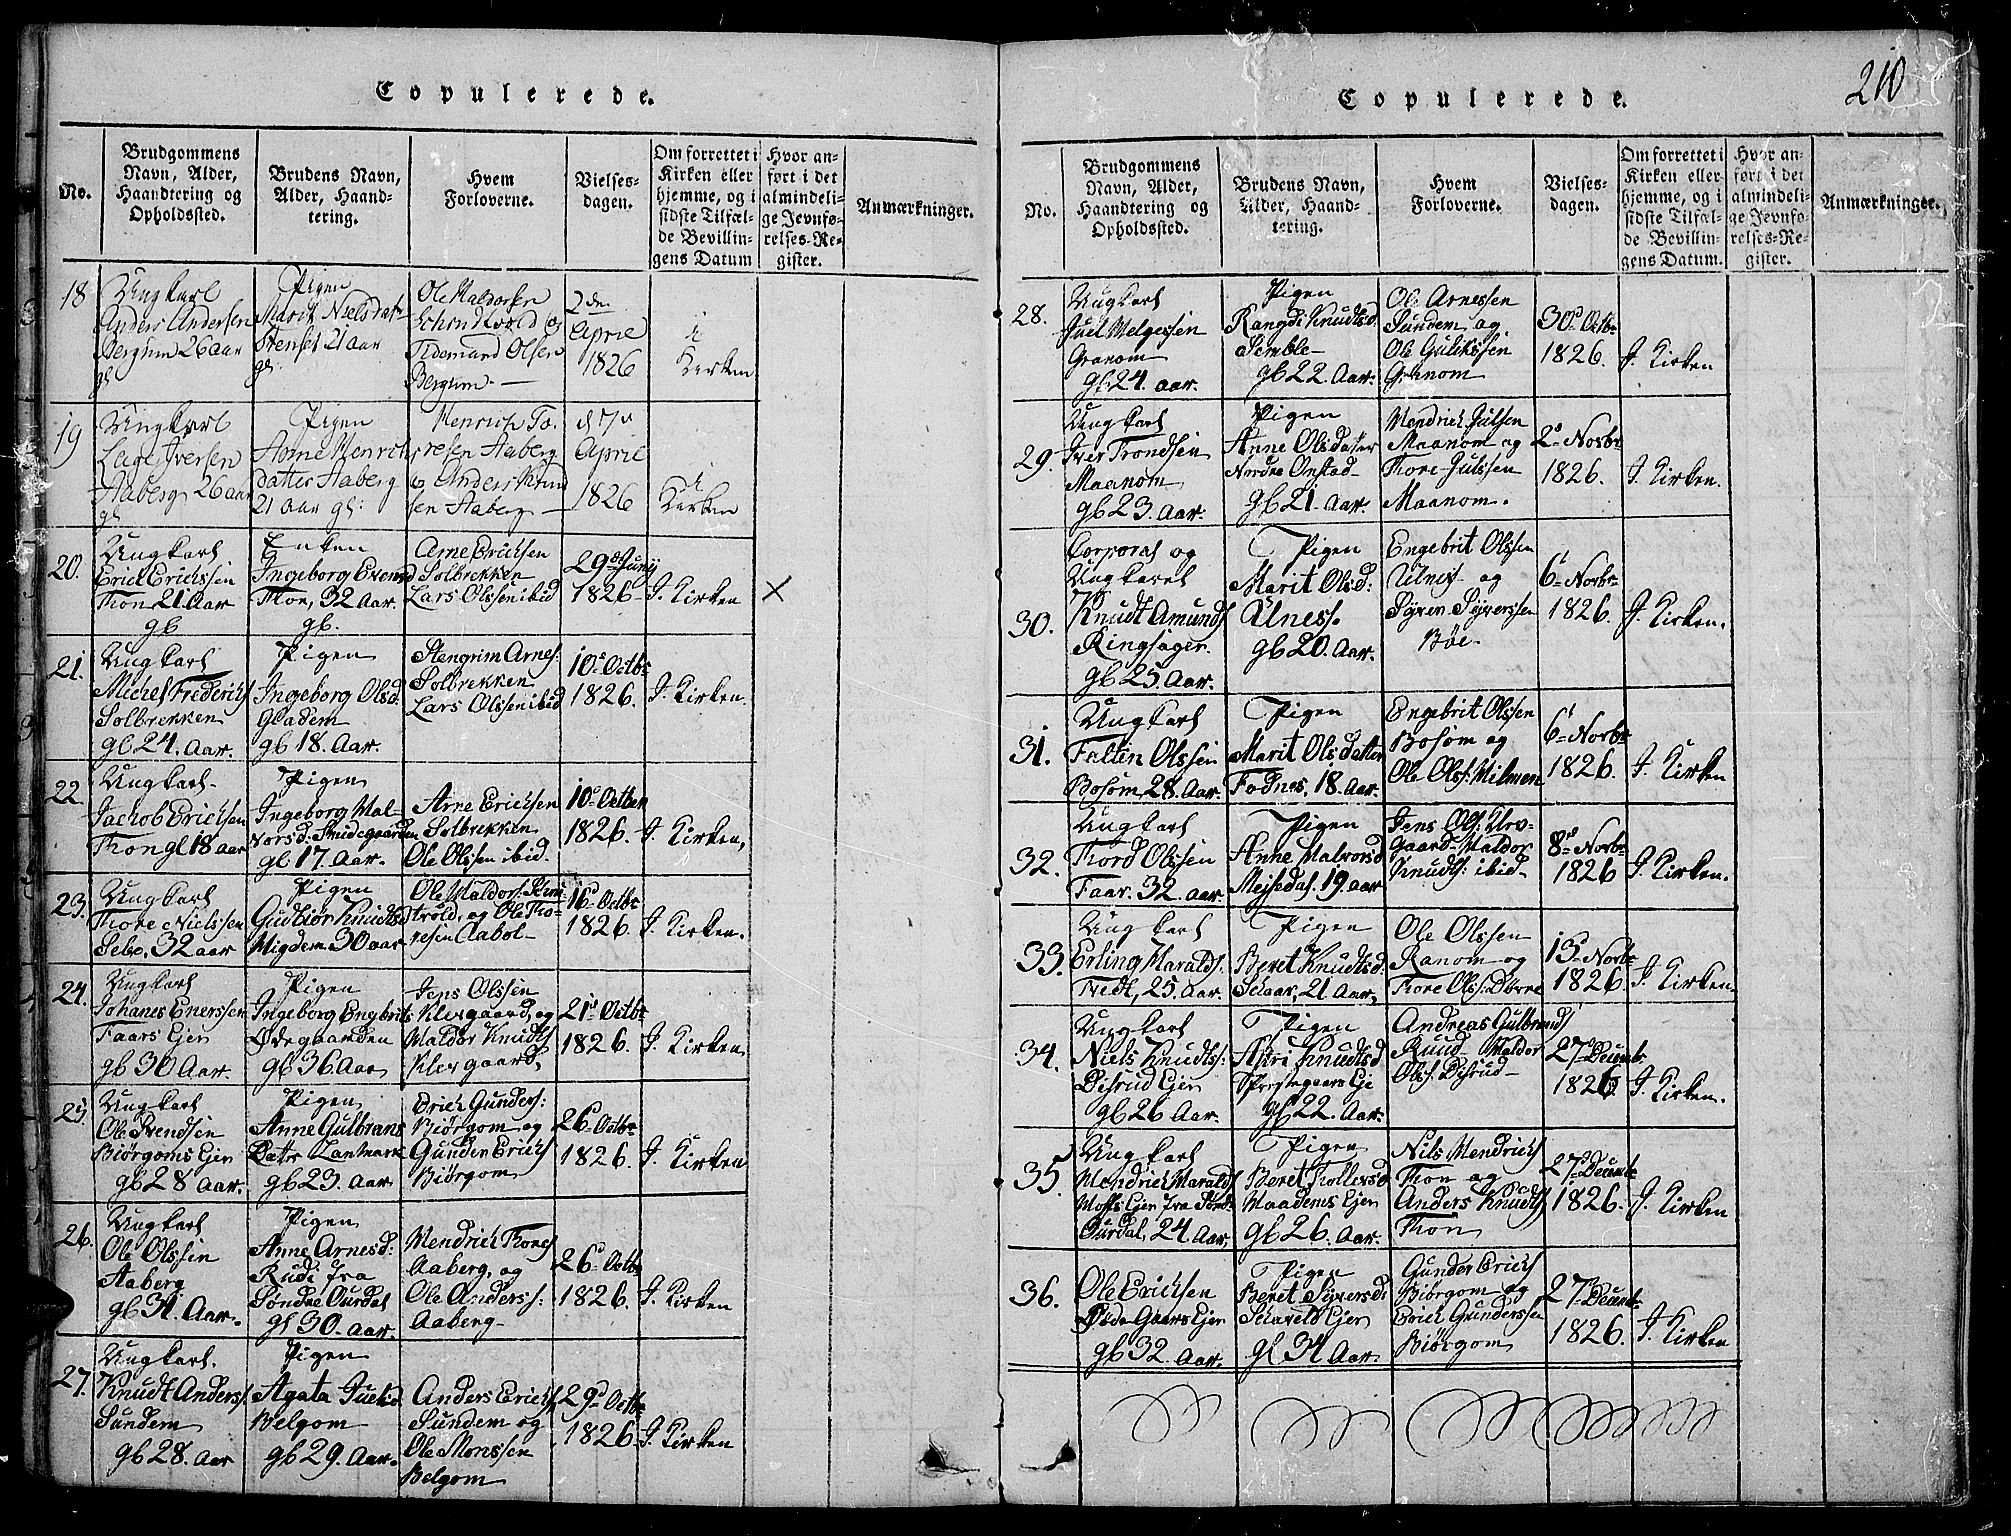 Copulerede.
No.
Brudgommens
Navn, Alder,
Haandtering og
Opholdssted.
Brudens Navn,
Alder, Haand-
tering.
Hvem
Forloverne.
Vielses-
dagen.
Om forrettet i
Kirken eller
hjemme, og i
sidste Tilfæl-
de Bevillin-
gens Datum
Hvor an-
ført i det
almindeli-
ge Jevnfø-
relses-Re-
gister.
Anmærkninger.
18
Ungkarl
Anders Andersen
Bergum 26 aar
gl
Pigen
Marit Nielsdat
Stenset 21 aar
gl.
Ole Haldorsen
og
Tidemand Olsen
Bergum.
2den
April
1826
i
Kirken
19
Ungkarl
Lage Iversen
Aaberg 26 aar
gl
Pigen
Anne Henrichs
datter Aaberg
21 aar gl:
Henrich To-
resen Aaberg
og Anders Knud
sen Aaberg
d 17
April
1826
i
Kirken
20.
Ungkarl
Erich Erichssen
Thon 21 Aar
gl
Enken
Ingeborg Evensd
Thon, 32 Aar.
gl.
Arne Erichsen
Solbrekken
Lars Olssen ibid
29de Juny
1826
J. Kirken
X
21.
Ungkarl
Michel Frederichs
Solbrekken
gl 24. Aar.
Pigen
Ingeborg Olsd.
Gladem
gl 18. Aar.
Stengrim Arnes:
Solbrekken
Lars Olssen ibid
10de Octbr
1826.
J. Kirken.
22
Ungkarl
Jachob Erichsen
Thon gl 18 aar
Pigen
Ingeborg Hal-
vorsd. Smidegaarden
gl. 17. Aar.
Arne Erichsen
Solbrekken
Ole Olssen ibid.
10de Octber
1826.
J. Kirken,
23.
Ungkarl
Thore Nielssen
Sebo, 32 aar
Pigen
Gudbiør Knudtsd
Migdem 30 aar
Ole Haldors:
trøld, og Ole Tho-
resen Aabol
16de Octbr
1826.
J. Kirken.
24.
Ungkarl
Johanes Enerssen
Faars Ejer
gl 30 Aar.
Pigen
Ingeborg Engebrits
Ødegaarden
gl. 36. Aar
Jens Olssen
Klevgaard, og
Haldor Knudts
Klevgaard,
21de Octbr
1826.
J. Kirken
25.
Ungkarl
Ole Svendsen
Biørgoms Ejer
gl 28 aar.
Pigen
Anne Gulbrans
Datter Lantmark
gl 23. aar
Erich Gunders:
Biørgom og
Gunder Erichs
Biørgom
26de Octbr
1826.
J. Kirken
26.
Ungkarl
Ole Olssen
Aaberg
gl 31. Aar.
Pigen
Anne Arnesd:
Rudi fra
Søndre Ourdal
gl 30. aar.
Hendrich Thores
Aaberg, og
Ole Anderss:
Aaberg
26de Octbr
1826.
J. Kirken
27.
Ungkarl.
Knudt Anderss.
Sundem
gl 28. Aar
Pigen
Agata Juelsd
Belgom
gl 29. Aar.
Anders Erichs
Sundem og
Ole Monssen
Belgom
29de Octbr
1826.
J. Kirken
210
Copulerede.
No.
Brudgommens
Navn, Alder,
Haandtering og
Opholdssted.
Brudens Navn,
Alder, Haand-
tering.
Hvem
Forloverne.
Vielses-
dagen.
Om forrettet i
Kirken eller
hjemme, og i
sidste Tilfæl-
de Bevillin-
gens Datum.
Hvor an-
ført i det
almindeli-
ge Jevnfø-
relses-Re-
gister.
Anmærkninger.
28.
Ungkarl
Juel Helgesen
Granom
gl 24. aar.
Pigen
Rangdi Knudtsd.
Semble
gl 22. Aar.
Ole Arnessen
Sundem og
Ole Gulikssen
Granom
30de Octbr
1826.
J. Kirken
29.
Ungkarl
Iver Trondsen
Maanom
gl 23. Aar.
Pigen
Anne Olsdater
Nordre Onstad
gl 21. Aar.
Hendrich Julsen
Maanom og
Thore Julssen
Maanom.
2de Novbr
1826.
J. Kirken.
30.
Corporal og
Ungkarl
Knudt Amunds
Ringsager.
gl 25. Aar.
Pigen
Marit Olsd:
Ulness.
gl 20. Aar.
Engebrit Olssen
Ulness og
Syver Syverssen
Bøe
6te Novbr
1826.
J. Kirken.
31.
Ungkarl
Faltin Olssen
Bosom, 28. Aar.
Pigen
Marit Olsdatter
Fodnes, 18. aar.
Engebrit Olssen
Bosom og
Ole Ols: Hilmen
6te Novbr
1826.
J. Kirken
32.
Ungkarl
Thord Olssen
Faar. 32. aar.
Pigen
Anne Halvorsd
Mejsedal. 19. aar
Jens Ols: Klev-
gaard Haldor
Knudts: ibid
8de Novbr
1826
J. Kirken.
33.
Ungkarl
Erling Haralds.
Tvedt, 25. Aar.
Pigen
Beret Knudtsd.
Skaar, 21 Aar,
Ole Olssen
Ranom og
Thore Ols:
15de Novbr
1826.
J. Kirken.
34.
Ungkarl
Niels Knudts:
Bisrud Ejer
gl 26 Aar.
Pigen
Knudtsd
Prestegaars Eje
gl. 22. Aar.
Andreas Gulbrands
Ruud Haldor
Ols. Bisrud
27de Decembr
1826
J. Kirken.
35.
Ungkarl
Hendrich Haralds
Moss Ejer fra Sønd.
Ourdal, 24 Aar,
Pigen
Beret Tollevsd
Maadems Ejer
gl 26. Aar.
Nils Hendrichs
Thon og
Anders Knudts
Thon
27de Decembr
1826.
J. Kirken
36.
Ole Erichsen
Øde-Gaars Ejer
gl 32 Aar.
Pigen
Beret Syversd:
Skaveld Ejer
gl 31 Aar.
Gunder Erichs
Biørgom og
Erich Gunderssen
Biørgom
27de Decembr
1826.
J. Kirken